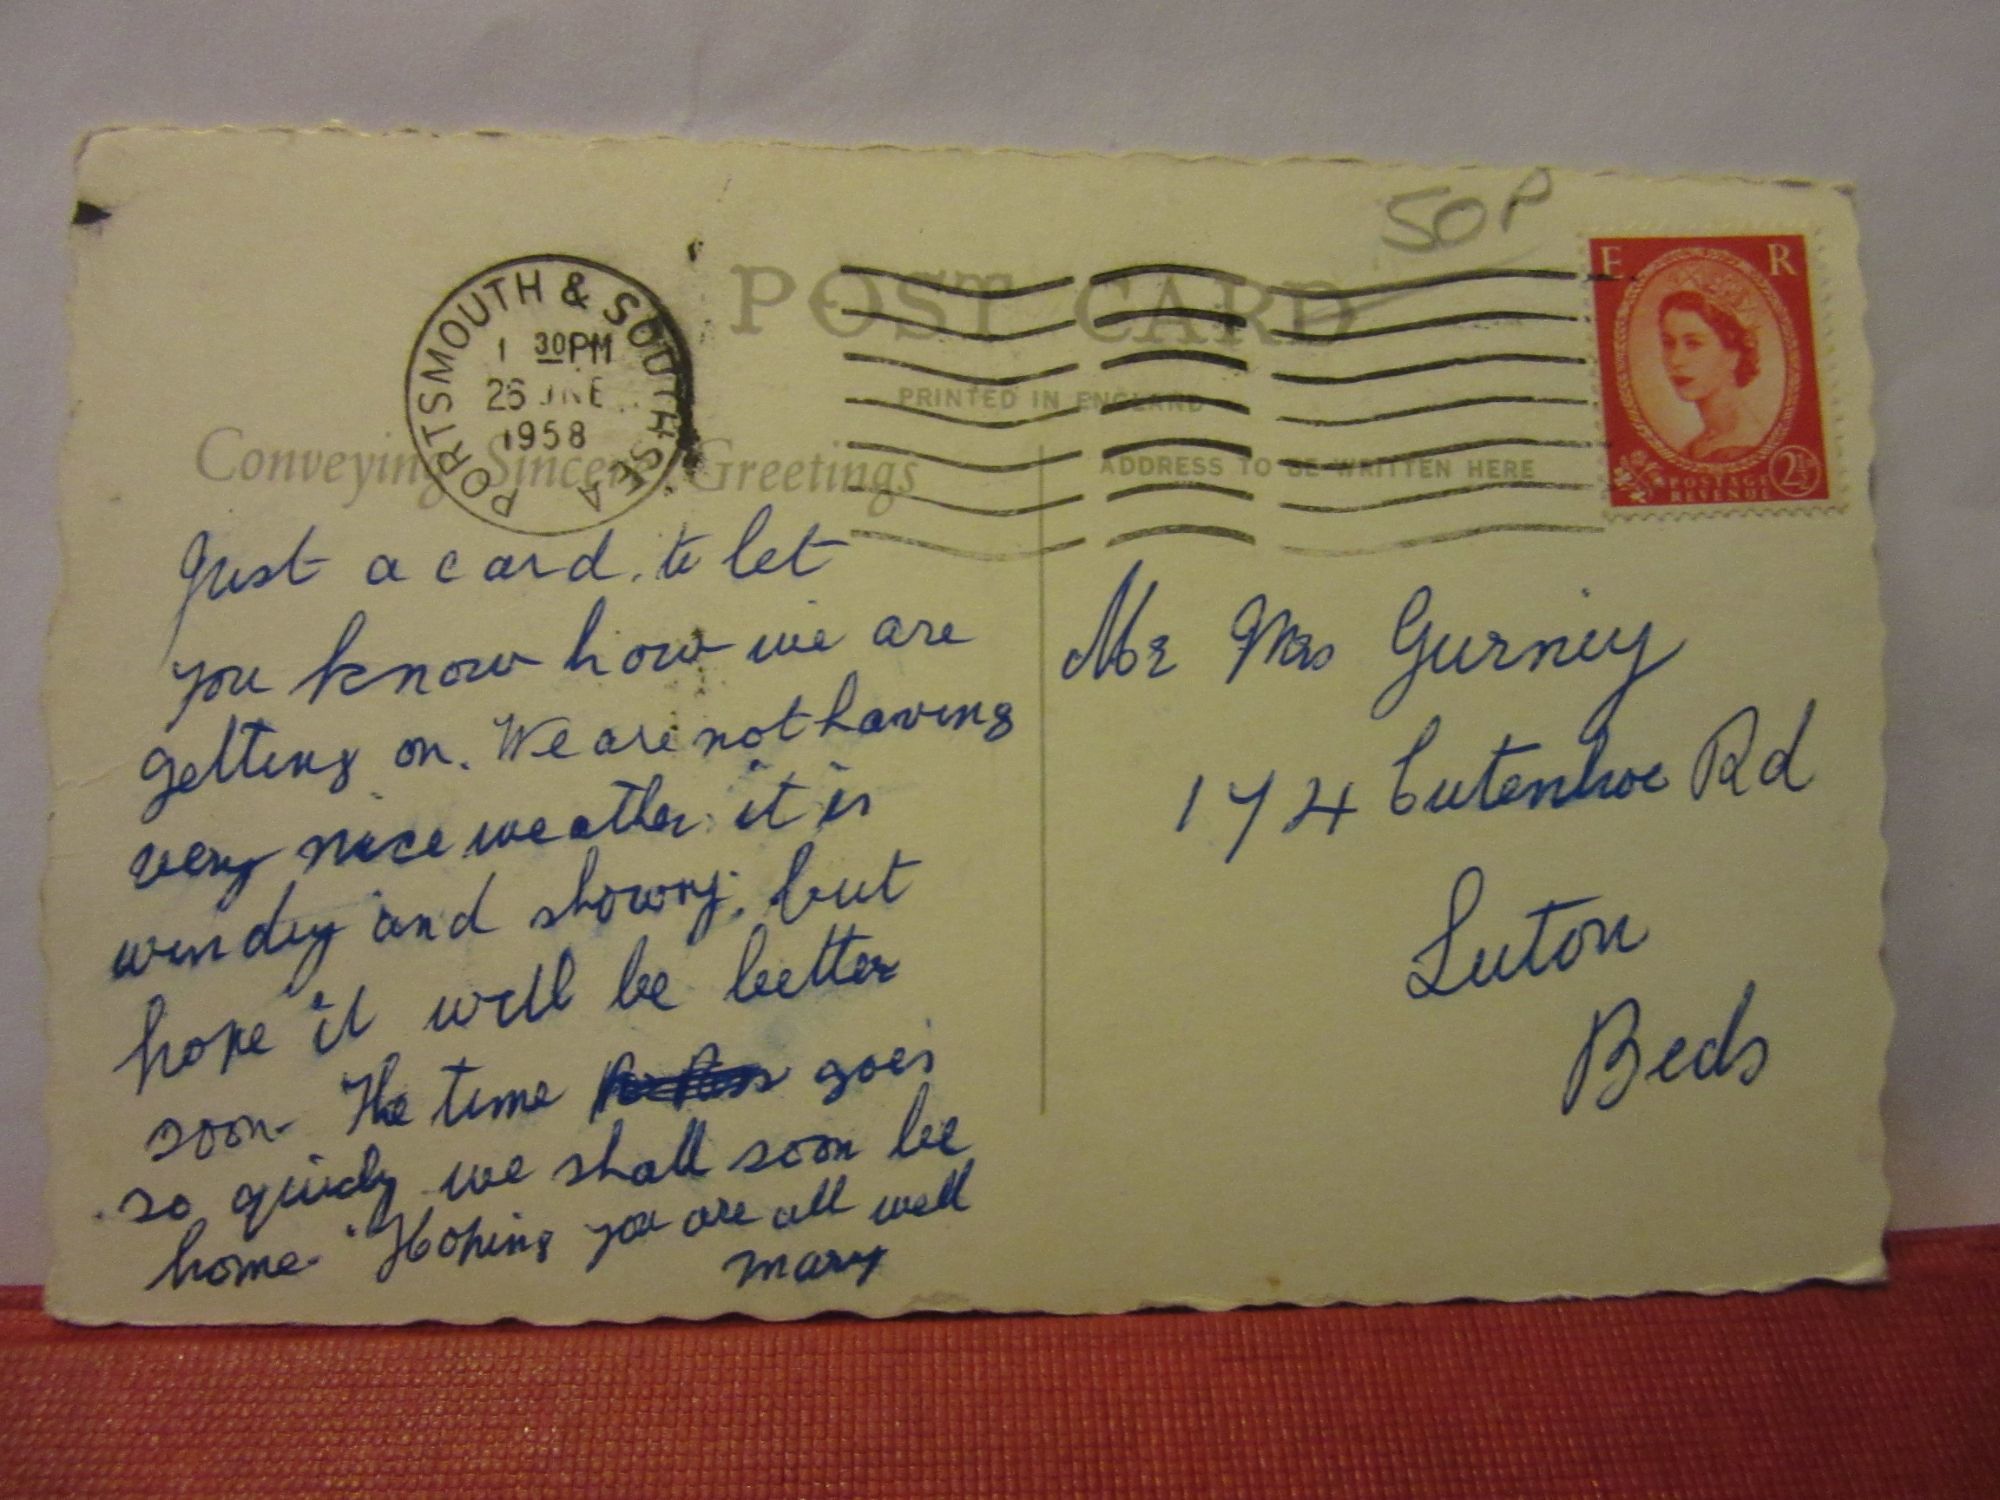 50P
POST CARD
PRINTED IN ENGLAND
ADDRESS TO BE WRITTEN HERE
E R
POSTAGE
REVENUE
2½
PORTSMOUTH & SOUTHSEA
1 30PM
26 JNE
1958
A
Conveying Sincere Greetings
Just a card, to let
you know how we are
getting on. We are not having
very nice weather it is
windey and showry, but
hope it will be better
soon. The time goes
so quickly we shall soon be
home. Hoping you are all well
Mary
Mr Mrs Gurney
174 Cutenhoe Rd
Luton
Beds